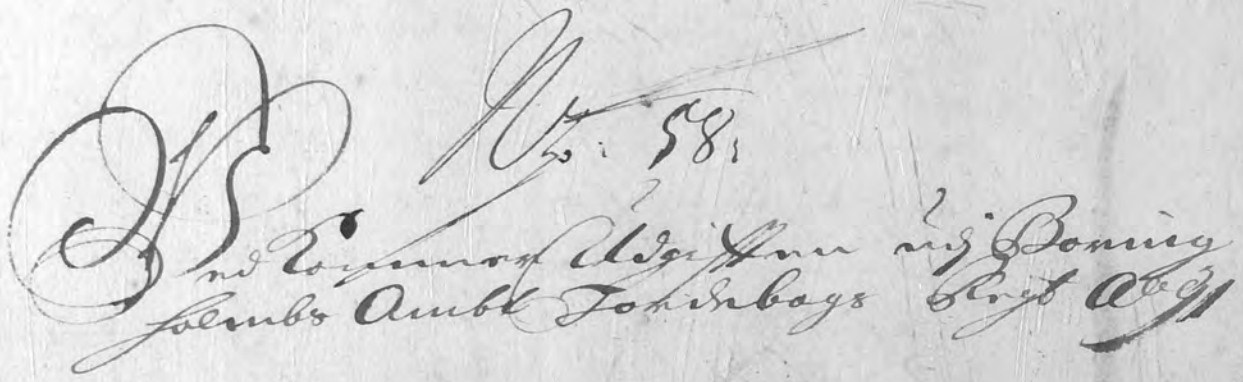 No: 58:
Vedkommer Udgifften udj Boring
holmbs Ambt Jordebogs Regt